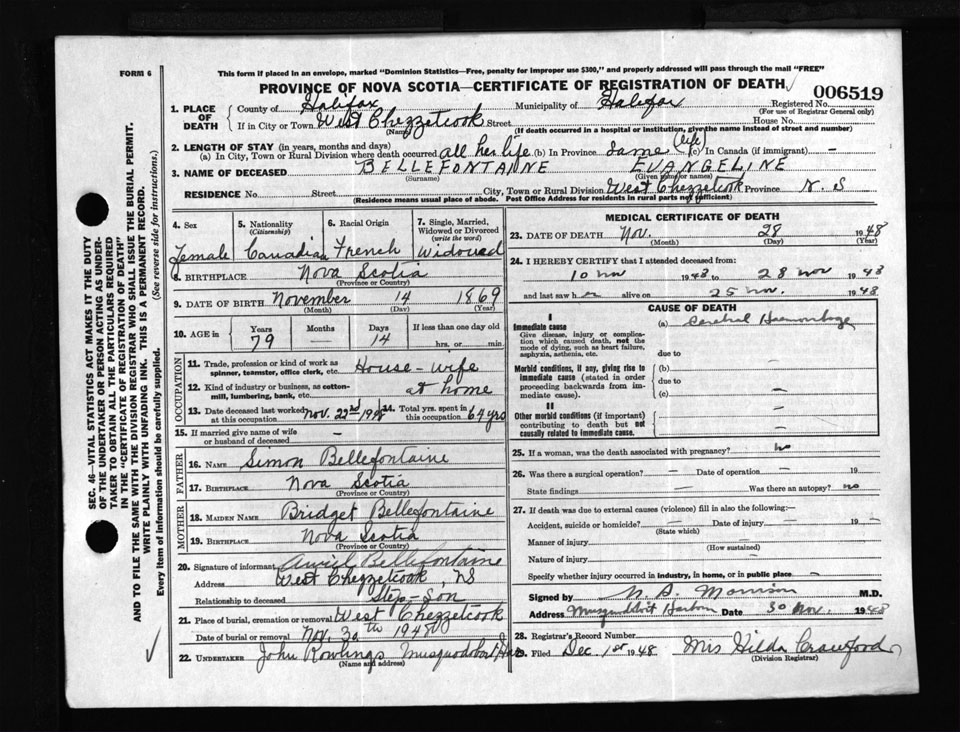 FORM 6
This form if placed in an envelope, marked "Dominion Statistics—Free, penalty for improper use $300," and properly addressed will pass through the mail "FREE"
PROVINCE OF NOVA SCOTIA—CERTIFICATE OF REGISTRATION OF DEATH
006519
1. PLACE OF DEATH
County of Halifax Municipality of Halifax Registered No.
(For use of Registrar General only)
If in City or Town West Chezzetcook Street House No.
(Name) (If death occurred in a hospital or institution, give the name instead of street and number)
2. LENGTH OF STAY (in years, months and days)
(a) In City, Town or Rural Division where death occurred all her life (b) In Province Same (life) (c) In Canada (if immigrant) —
3. NAME OF DECEASED BELLEFONTAINE EVANGELINE
(Surname) (Given name or names)
RESIDENCE No. Street City, Town or Rural Division West Chezzetcook Province N. S
(Residence means usual place of abode. Post Office Address for residents in rural parts not sufficient)
4. Sex
Female
5. Nationality (Citizenship)
Canadian
6. Racial Origin
French
7. Single, Married, Widowed or Divorced (write the word)
Widowed
8. BIRTHPLACE Nova Scotia
(Province or Country)
9. DATE OF BIRTH November 14 1869
(Month) (Day) (Year)
10. AGE in Years Months Days If less than one day old
79 — 14 hrs. or min.
OCCUPATION
11. Trade, profession or kind of work as spinner, teamster, office clerk, etc. House-wife
12. Kind of industry or business, as cotton-mill, lumbering, bank, etc. at home
13. Date deceased last worked at this occupation Nov. 22nd 1948
14. Total yrs. spent in this occupation 64 yrs
15. If married give name of wife or husband of deceased —
FATHER
16. NAME Simon Bellefontaine
17. BIRTHPLACE Nova Scotia
(Province or Country)
MOTHER
18. MAIDEN NAME Bridget Bellefontaine
19. BIRTHPLACE Nova Scotia
(Province or Country)
20. Signature of informant Bellefontaine
Address West Chezzetcook, NS
Relationship to deceased Step-Son
21. Place of burial, cremation or removal West Chezzetcook
Date of burial or removal Nov. 30th 1948
22. UNDERTAKER John Rowlings Musquodoboit Har.
(Name and address)
MEDICAL CERTIFICATE OF DEATH
23. DATE OF DEATH Nov. 28 1948
(Month) (Day) (Year)
24. I HEREBY CERTIFY that I attended deceased from:
10 Nov 1948 to 28 Nov 1948
and last saw her alive on 25 Nov. 1948
CAUSE OF DEATH
I
Immediate cause (a) Cerebral Haemorrhage
Give disease, injury or complication which caused death, not the mode of dying, such as heart failure, asphyxia, asthenia, etc.
due to
Morbid conditions, if any, giving rise to immediate cause (stated in order proceeding backwards from immediate cause).
(b) —
due to
(c) —
II
Other morbid conditions (if important) contributing to death but not causally related to immediate cause.
25. If a woman, was the death associated with pregnancy? no
26. Was there a surgical operation? — Date of operation — 19 —
State findings — Was there an autopsy? no
27. If death was due to external causes (violence) fill in also the following:—
Accident, suicide or homicide? — Date of injury — 19 —
(State which)
Manner of injury —
(How sustained)
Nature of injury —
Specify whether injury occurred in industry, in home, or in public place —
Signed by Morrison M.D.
Address Musquodoboit Harbour Date 30 Nov. 1948
28. Registrar's Record Number
29. Filed Dec 1st 1948 Mrs Hilda Crawford
(Division Registrar)
SEC. 46—VITAL STATISTICS ACT MAKES IT THE DUTY
OF THE UNDERTAKER OR PERSON ACTING AS UNDER-
TAKER TO OBTAIN ALL THE PARTICULARS REQUIRED
IN THE "CERTIFICATE OF REGISTRATION OF DEATH"
AND TO FILE THE SAME WITH THE DIVISION REGISTRAR WHO SHALL ISSUE THE BURIAL PERMIT.
WRITE PLAINLY WITH UNFADING INK. THIS IS A PERMANENT RECORD.
Every item of information should be carefully supplied. (See reverse side for instructions.)